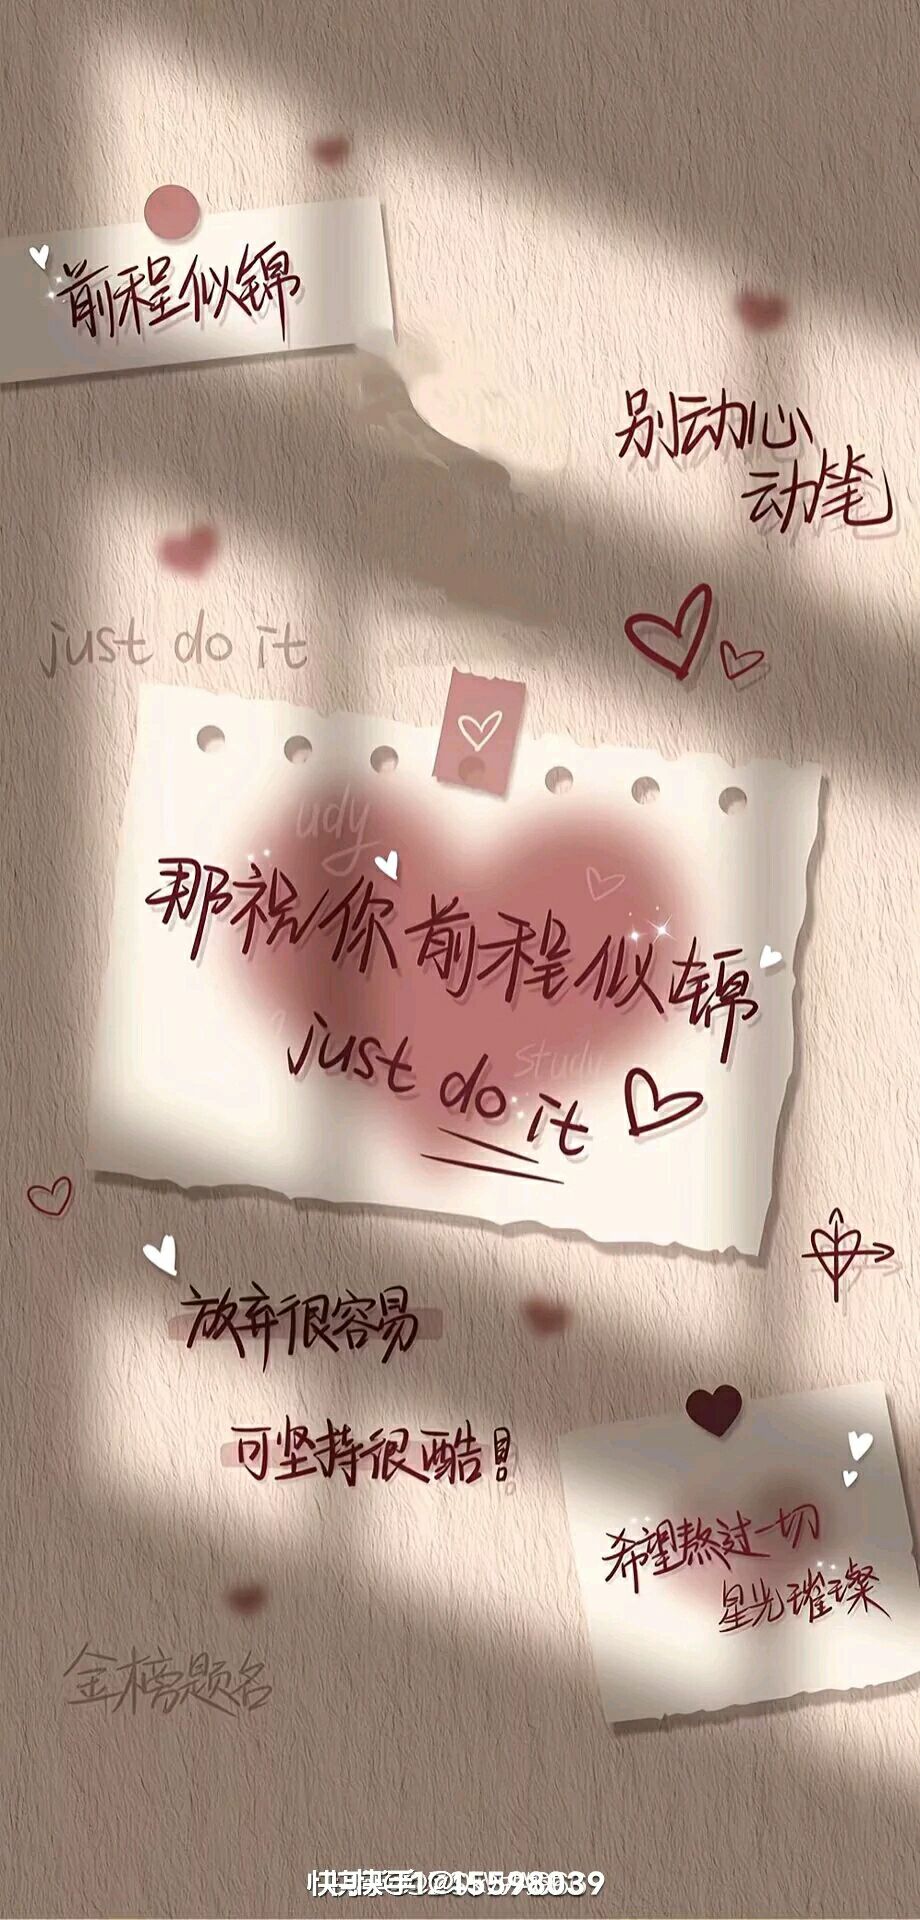 前程似锦
别动心
动笔
just do it
udy
那祝你前程似锦
study
just do it
放弃很容易
可坚持很酷!
希望熬过一切
星光璀璨
金榜题名